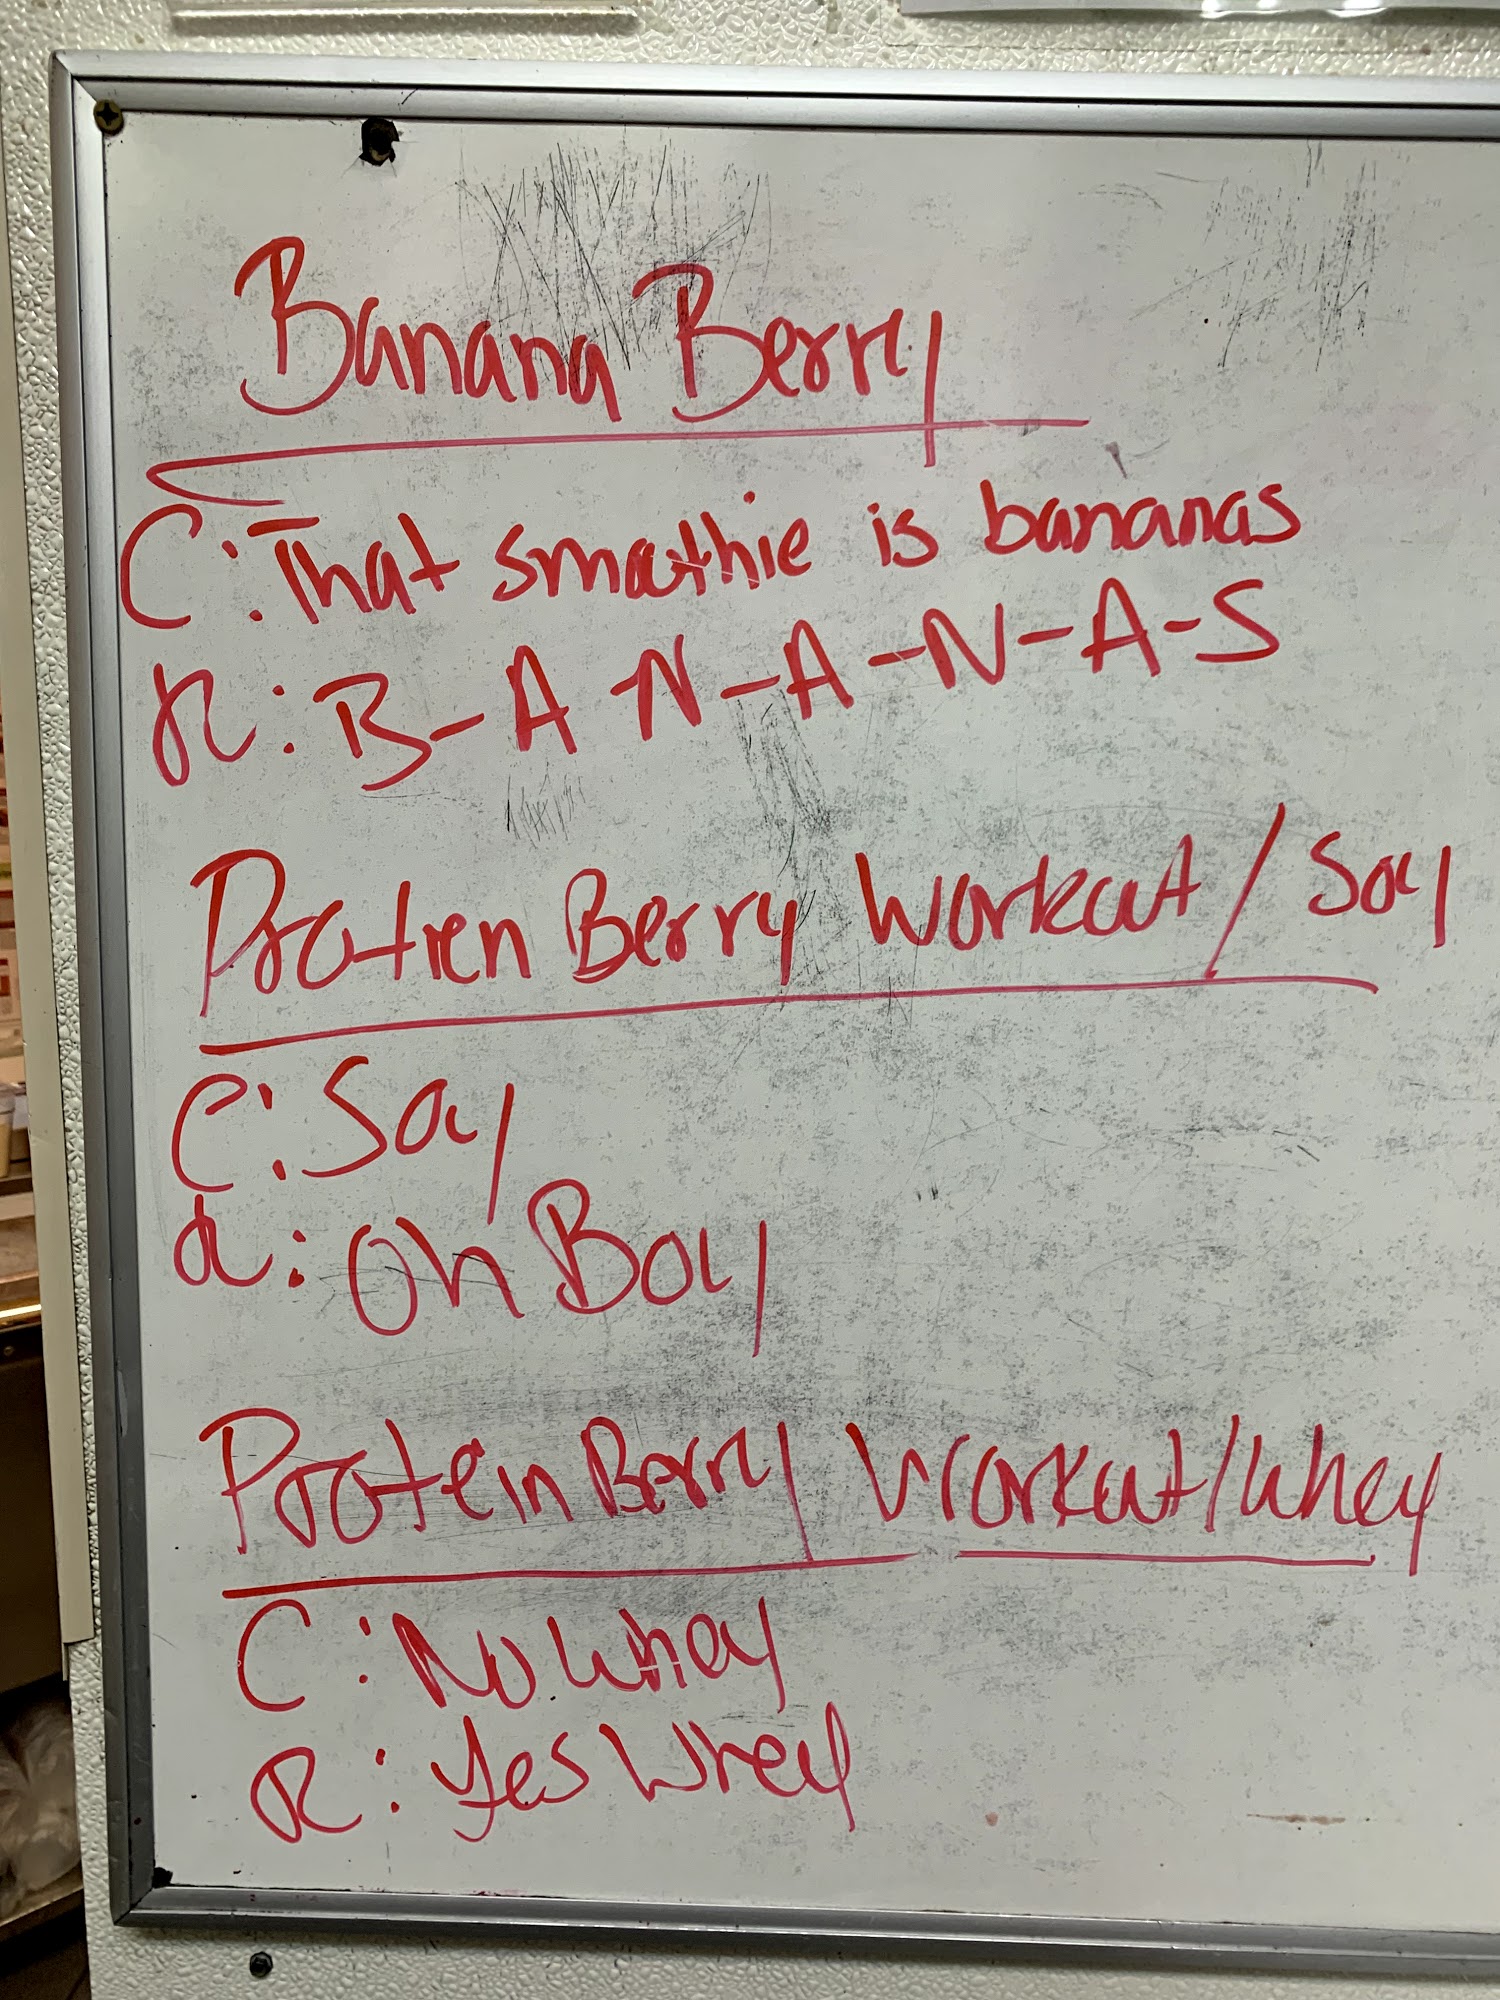 Banana Berry
C: That smoothie is bananas
R: B-A N-A-N-A-S
Protien Berry Workout/Soy
C: Soy
R: Oh Boy
Protein Berry Workout/Whey
C: No Whey
R: Yes Whey